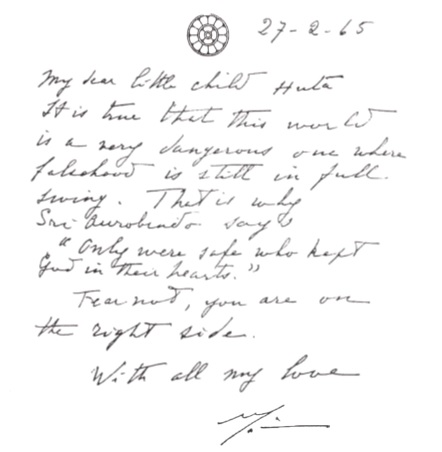 27-2-65
My dear little child Huta
It is true that this world
is a very dangerous one where
falsehood is still in full
swing. That is why
Sri Aurobindo says
"Only were safe who kept
God in their hearts."
Fear not, you are on
the right side.
With all my love